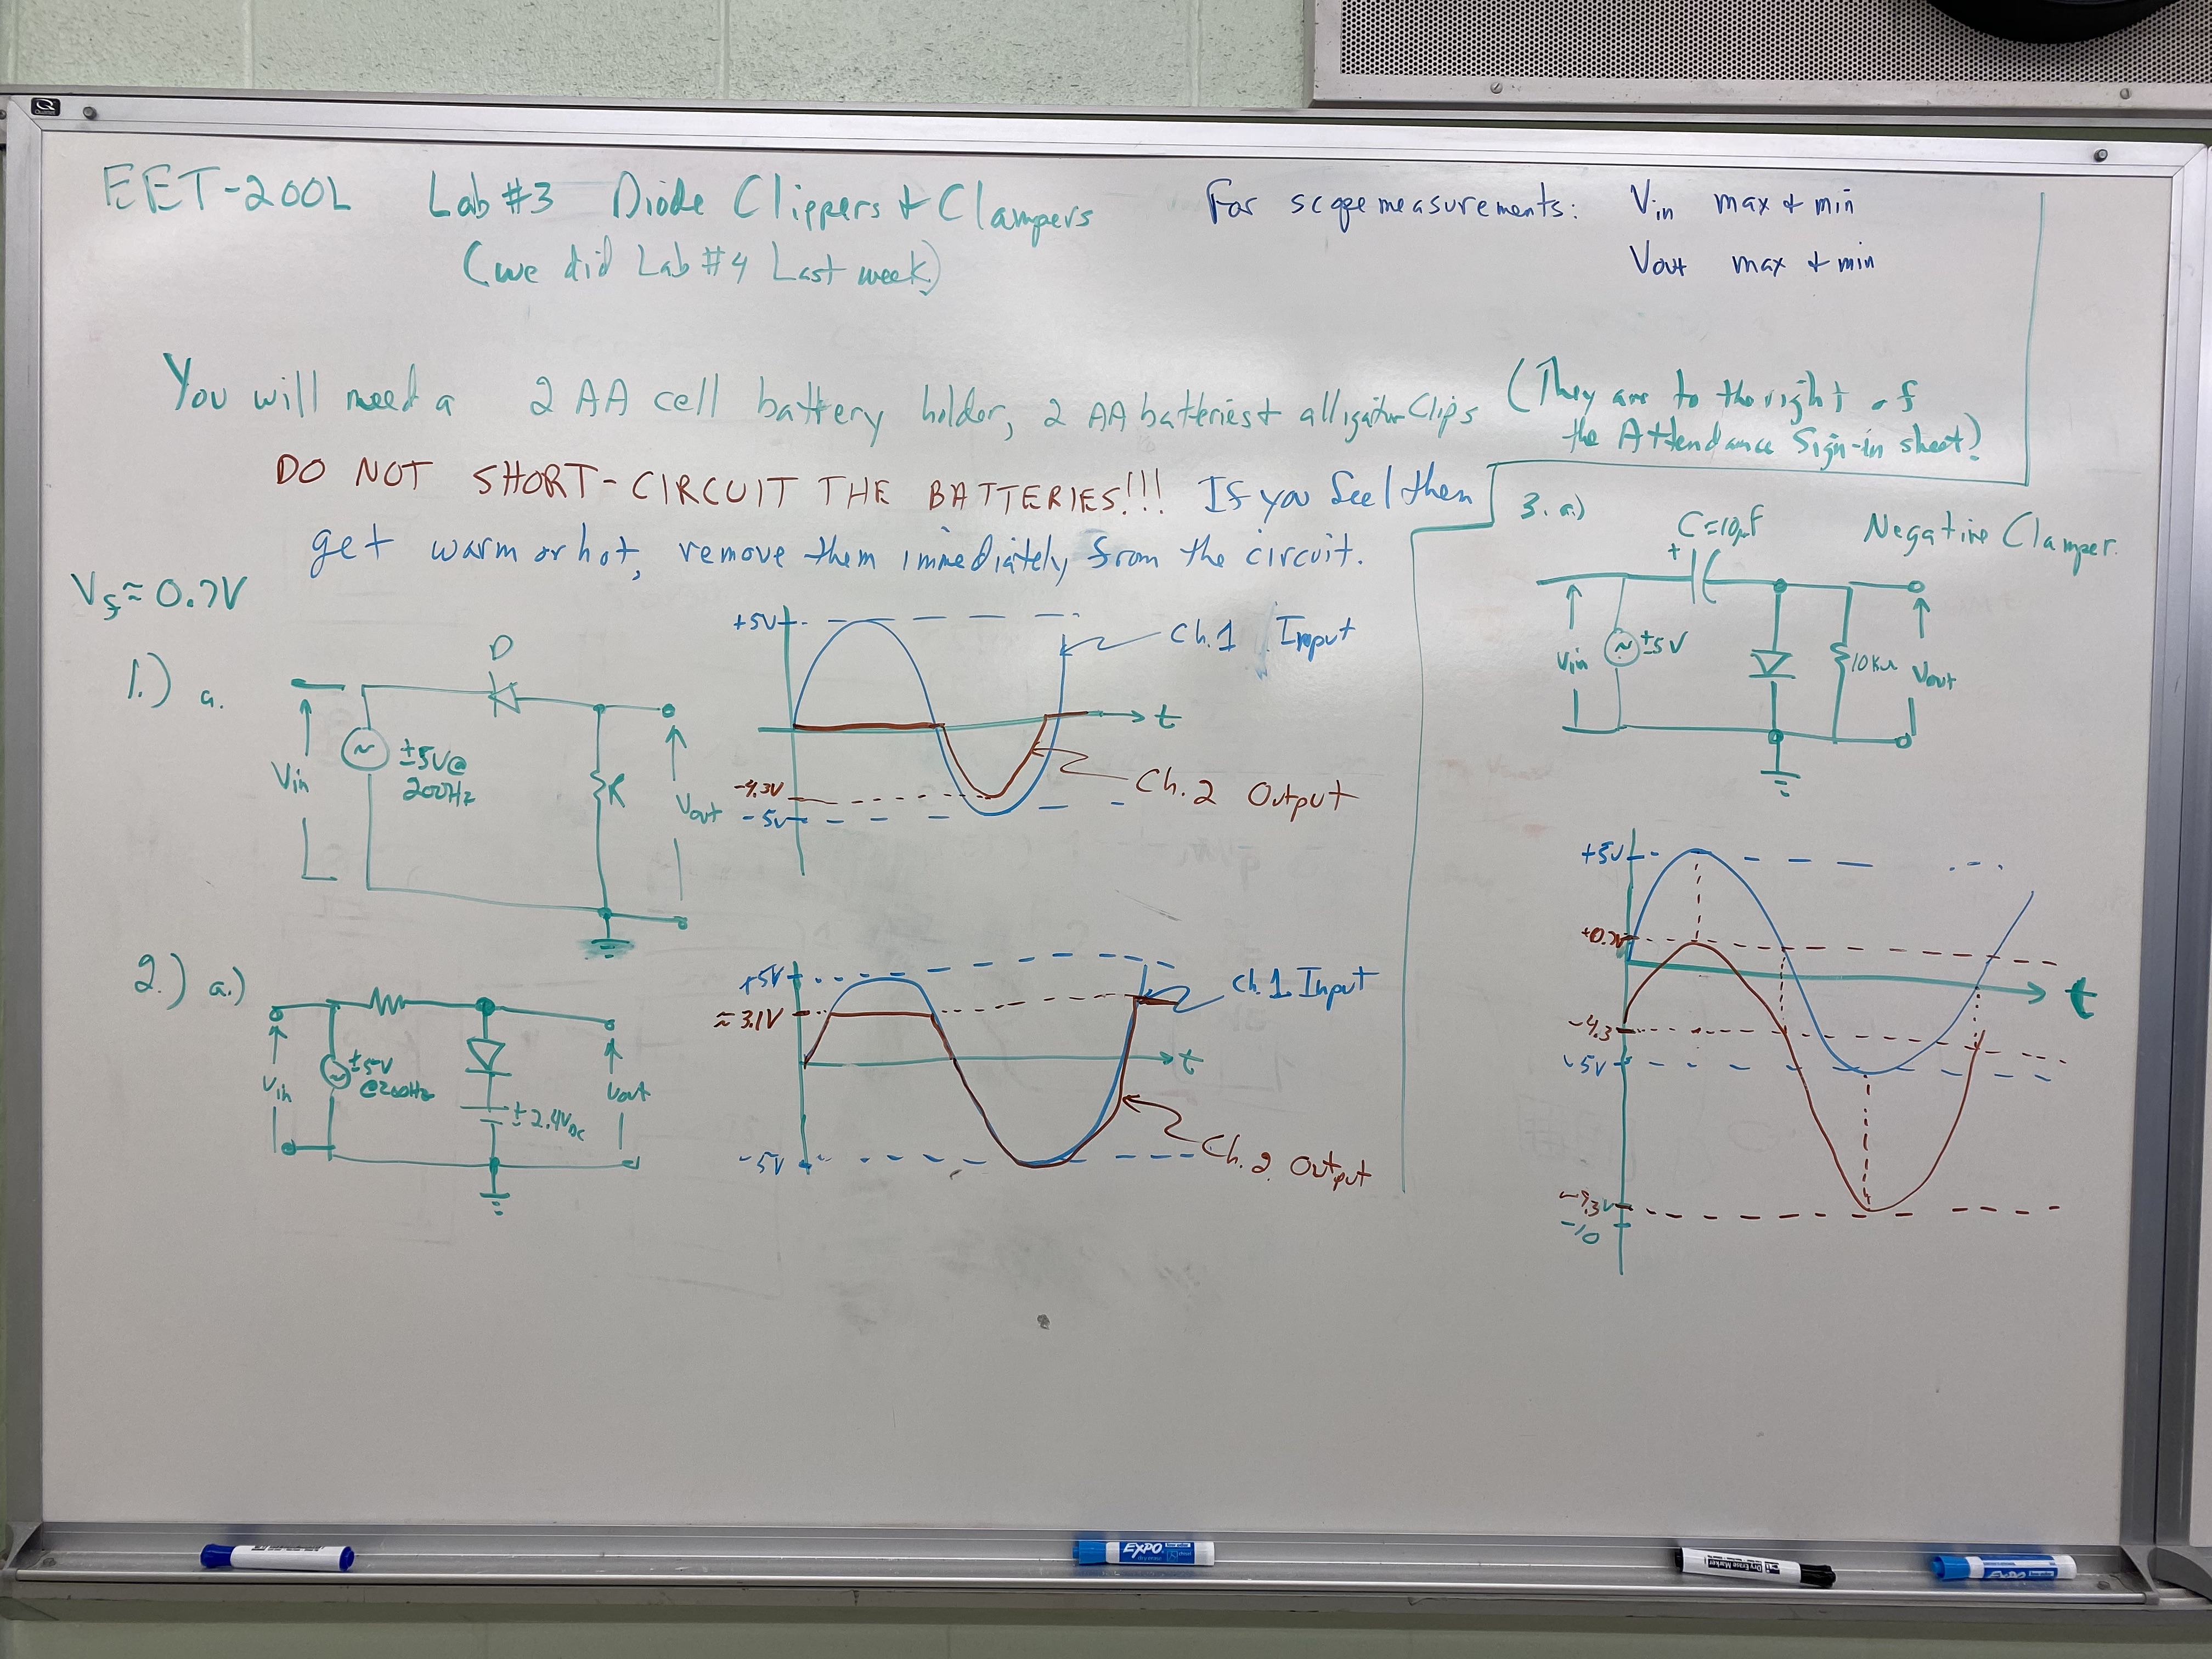 EET-200L Lab #3 Diode Clippers & Clampers
(we did Lab #4 Last week)
For scope measurements: Vin max & min
Vout max & min
You will need a 2 AA cell battery holder, 2 AA batteries & alligator Clips (They are to the right of
the Attendance Sign-in sheet)
DO NOT SHORT-CIRCUIT THE BATTERIES!!! If you feel them
get warm or hot, remove them immediately from the circuit.
Vf ≈ 0.7V
1.) a.
D
Vin
±5V@
200Hz
R
Vout
+5V
Ch.1 Input
t
-4.3V
-5V
Ch.2 Output
2.) a.)
Vin
±5V
@200Hz
± 2.4VDC
Vout
+5V
≈3.1V
Ch.1 Input
t
-5V
Ch.2 Output
3. a.)
Negative Clamper.
C=10µF
+
Vin
±5V
10KΩ
Vout
+5V
+0.7V
t
-4.3
-5V
-9.3V
-10
EXPO
Dry Erase Marker
EXPO